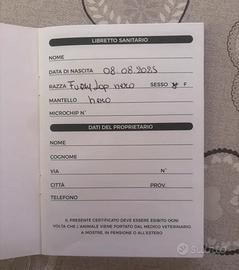 LIBRETTO SANITARIO
NOME
DATA DI NASCITA 08.08.2025
RAZZA Fuzzy Lop nero SESSO M F
MANTELLO nero
MICROCHIP N°
DATI DEL PROPRIETARIO
NOME
COGNOME
VIA N°
CITTÀ PROV.
TELEFONO
IL PRESENTE CERTIFICATO DEVE ESSERE ESIBITO OGNI
VOLTA CHE L'ANIMALE VIENE PORTATO DAL MEDICO VETERINARIO,
A MOSTRE, IN PENSIONE O ALL'ESTERO
subito